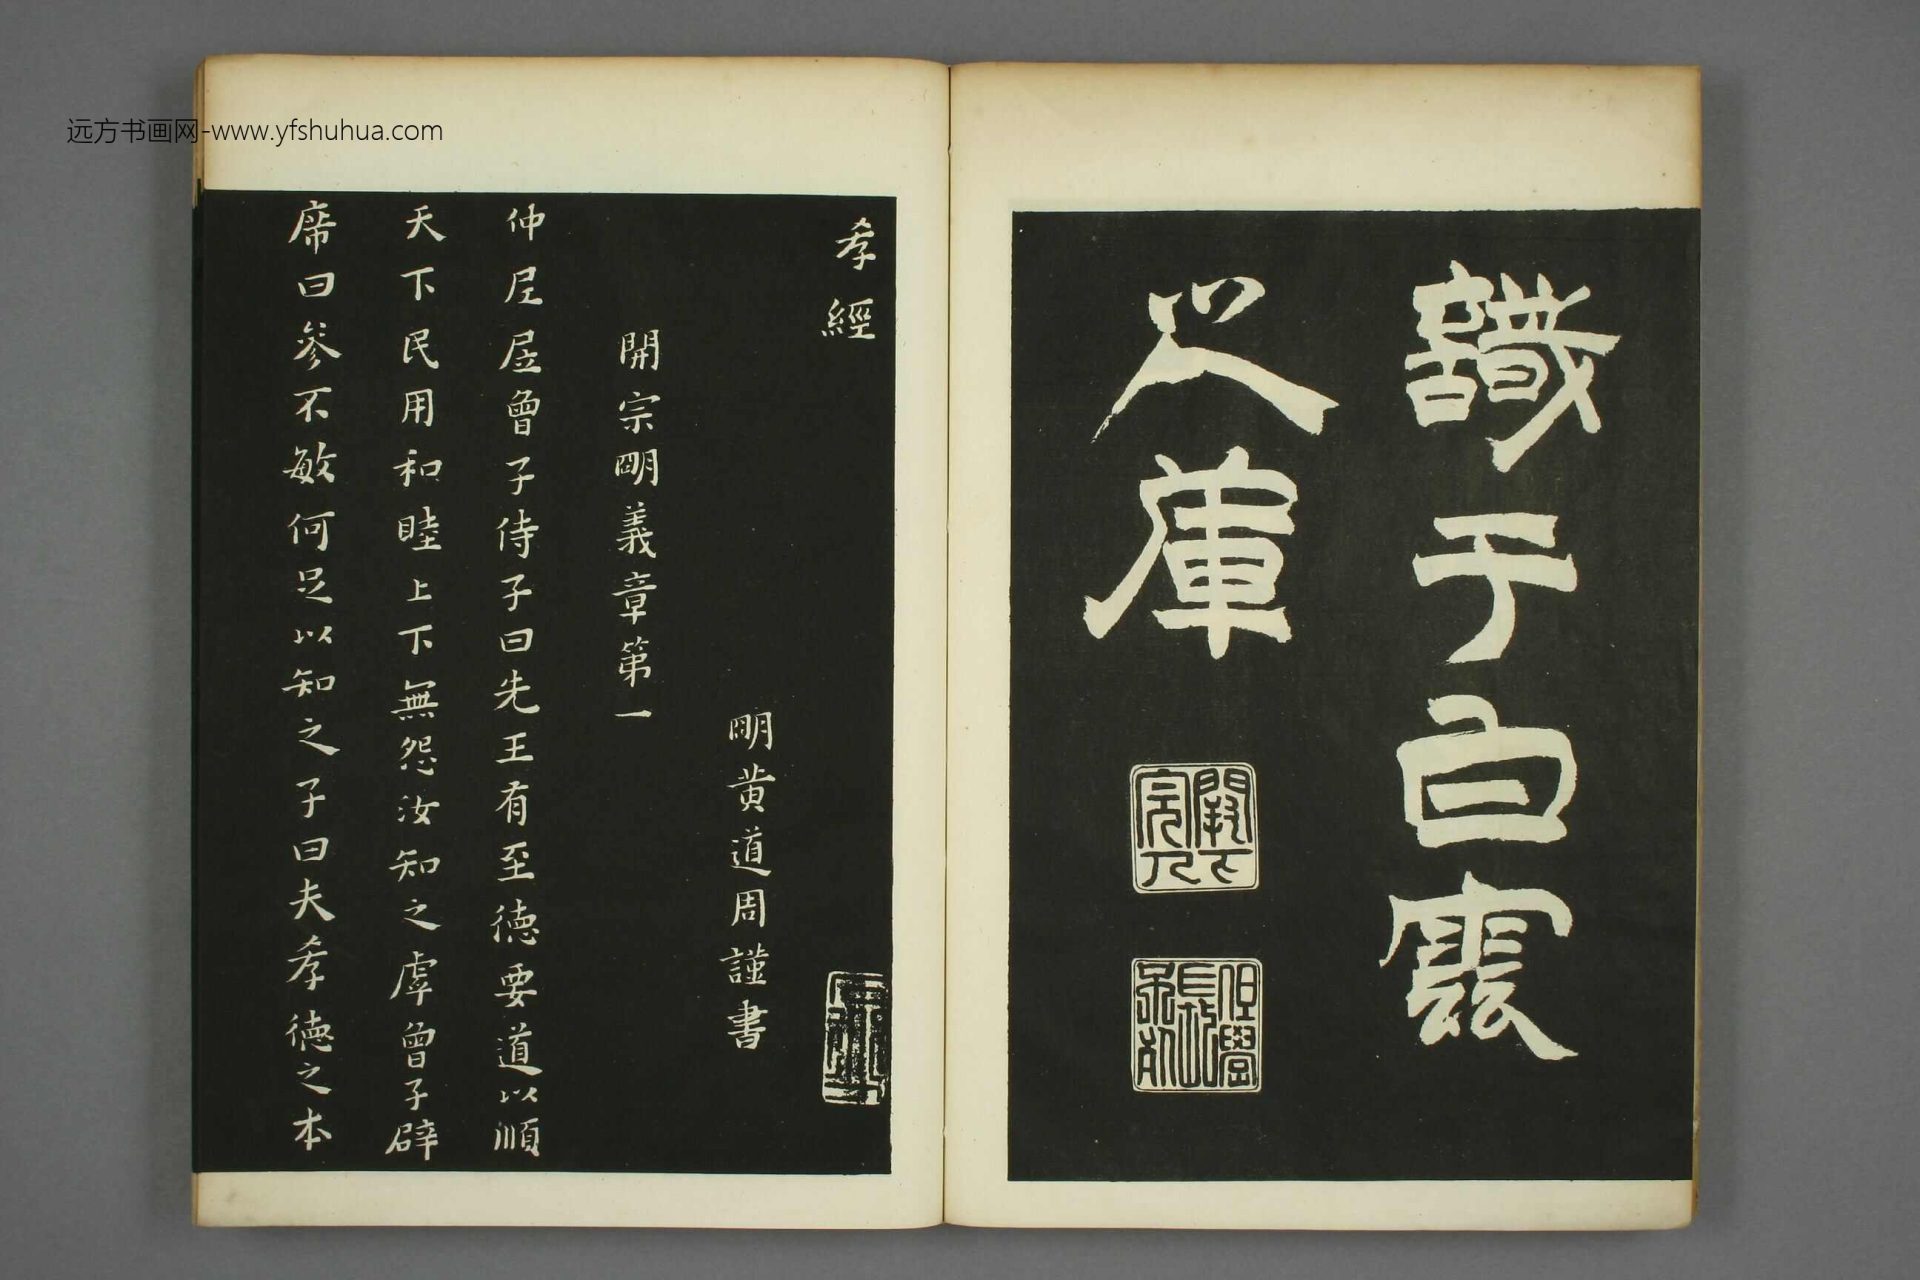 远方书画网-www.yfshuhua.com
識于白雲
之庫
孝經
明黄道周謹書
開宗明義章第一
仲尼凥曾子侍子曰先王有至德要道以順
天下民用和睦上下無怨汝知之虖曾子辟
席曰參不敏何足以知之子曰夫孝德之本